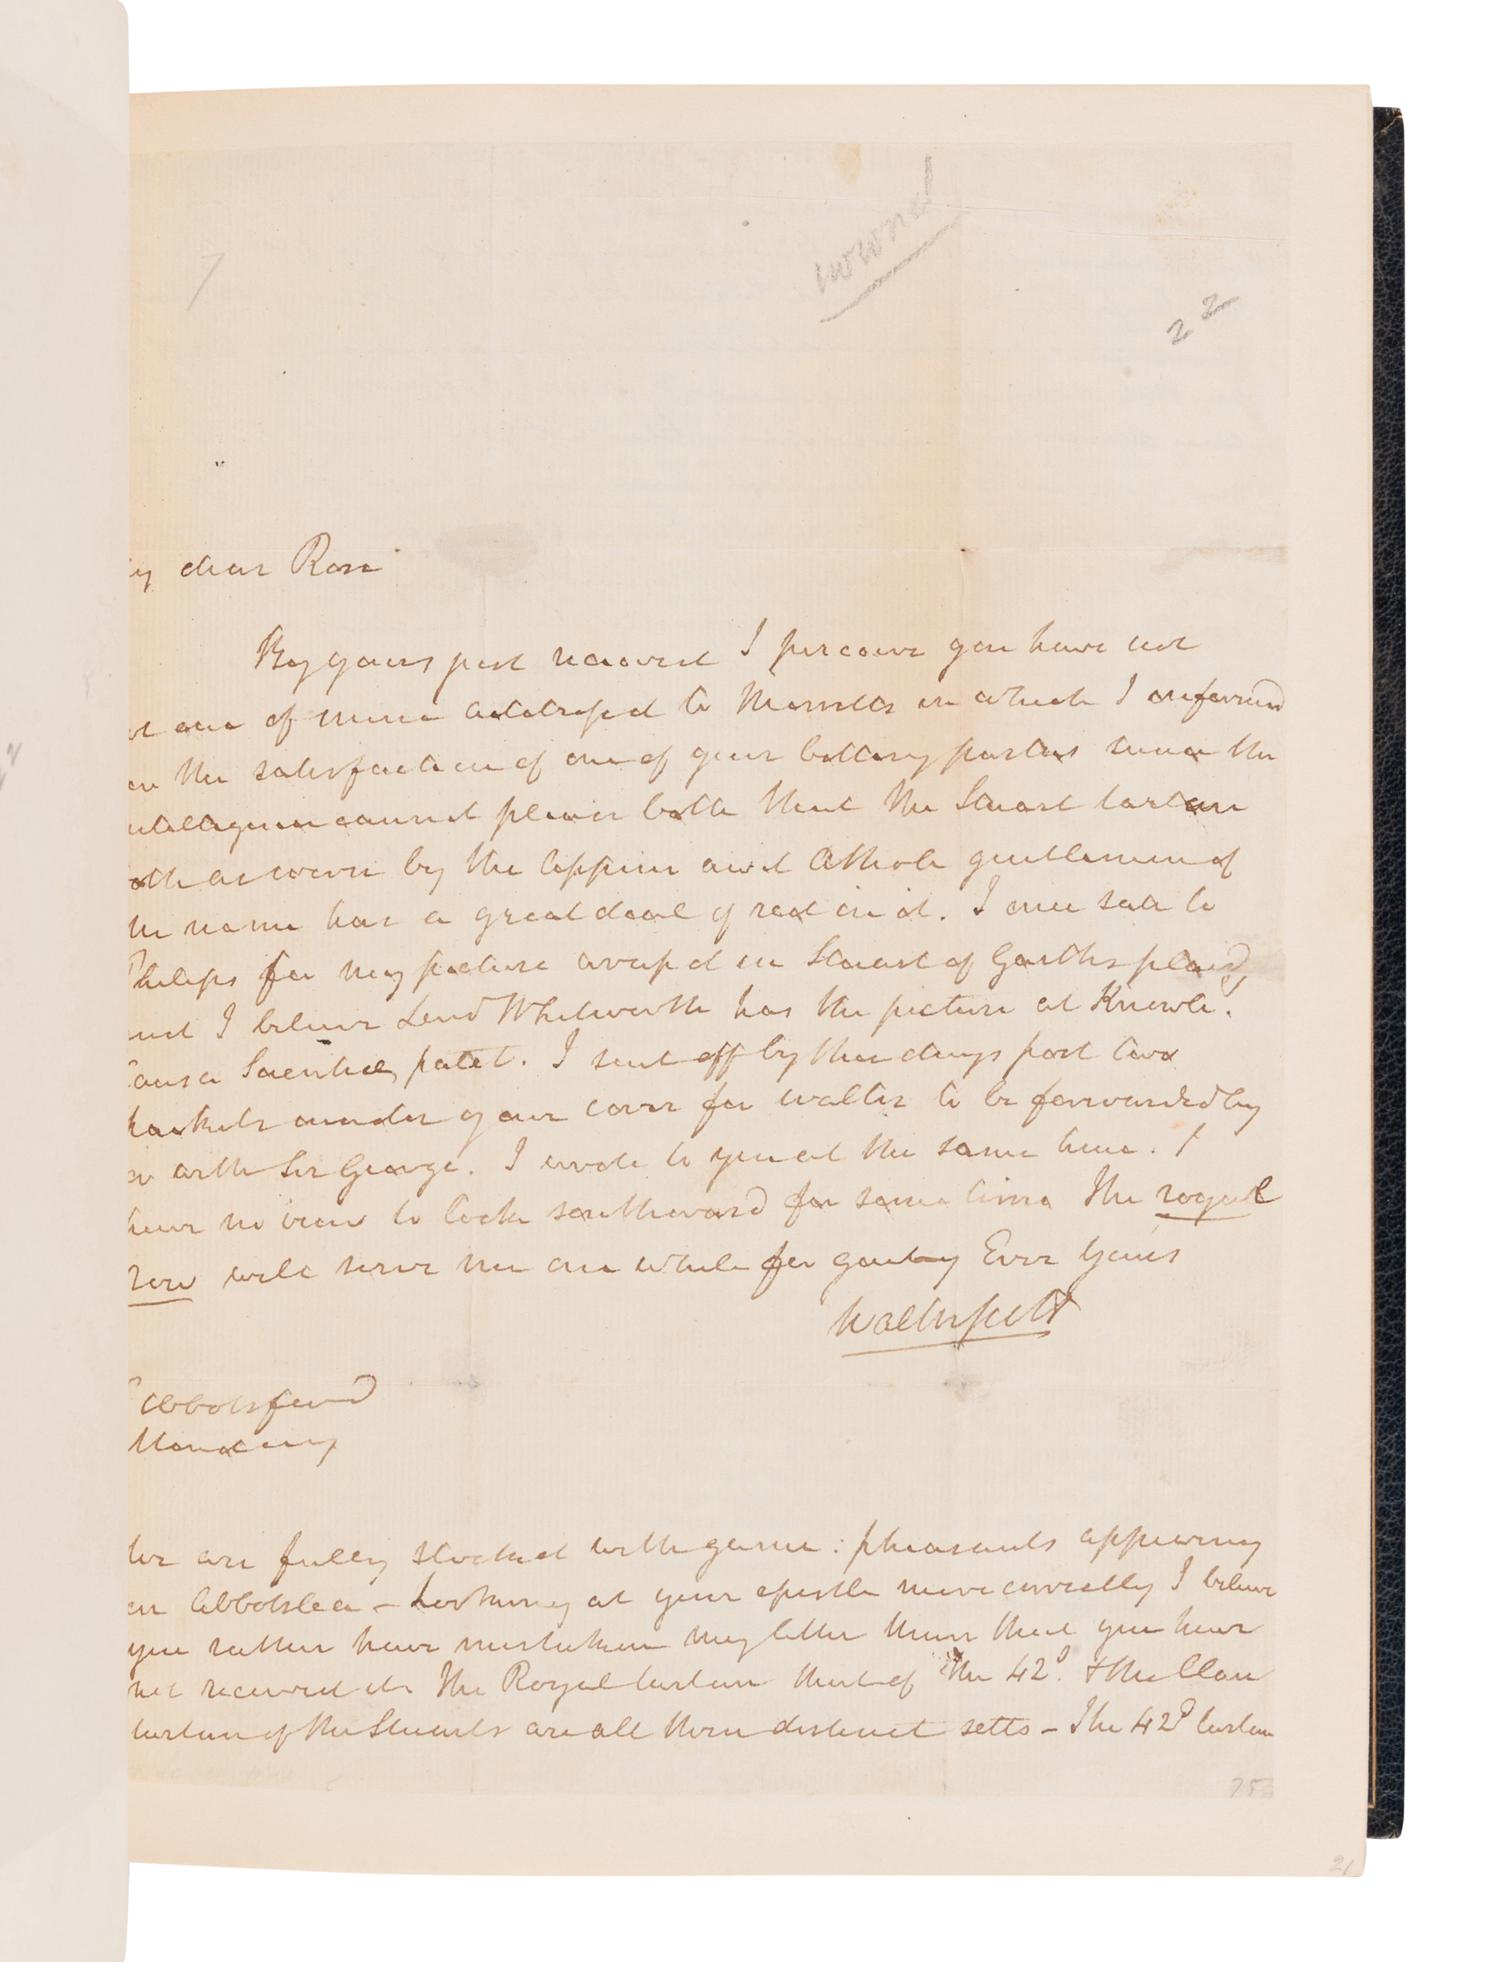 7
22
y dear Rose
By yours just received I perceive you have not
one of mine addressed to Morritts in which I informed
the satisfaction of one of your betting parties since the
cannot please both that the Stuart tartan
as worn by the Appine and Athole gentlemen of
name has a great deal of red in it. I once sate to
Philips for my picture wrapd in Stuart of Garths plaid,
I believe Lord Whitworth has the picture at Knowle.
Causa Scientiae patet. I sent off by three days post two
packets under your cover for Walter to be forwarded by
Sir George. I wrote to you at the same time. I
have no view to look southward for some time The royal
will serve me one while for gaiety Ever Yours
Walter Scott
Abbotsford
Monday
We are fully stocked with game: pheasants appearing
Abbotslea – Looking at your epistle more correctly I believe
you rather have mistaken my letter than that you have
not received it. The Royal tartan that of the 42d. & the Clan
tartan of the Stuarts are all three distinct setts – The 42d tartan
75
21